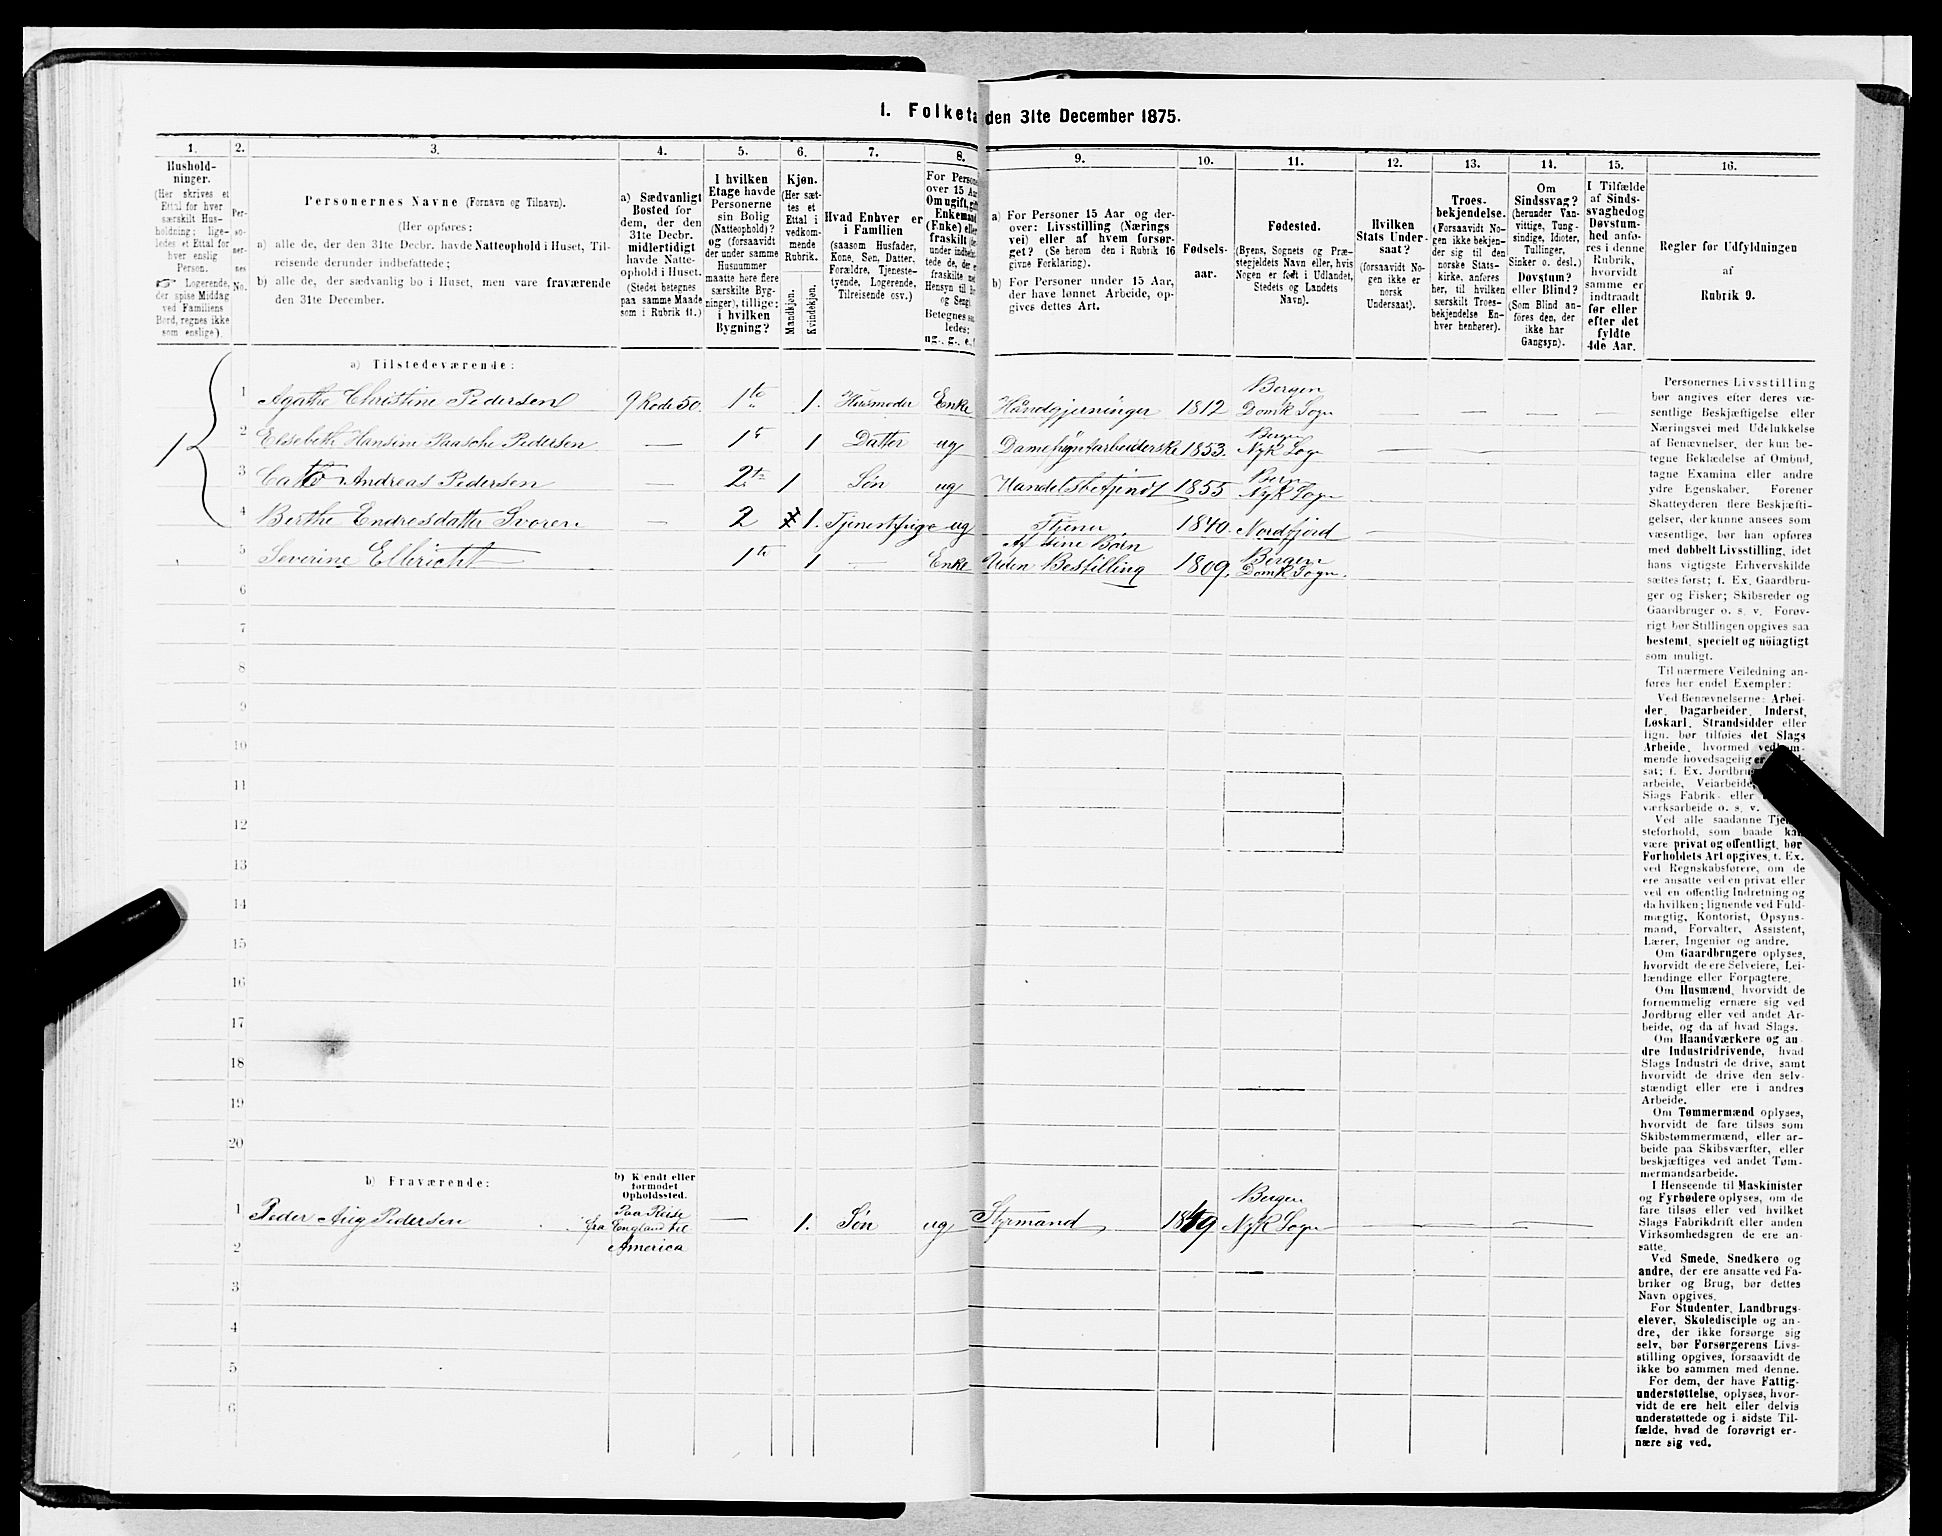 1. Folketa den 31te December 1875.
1. 2. 3. 4. 5. 6. 7. 8. 9. 10. 11. 12. 13. 14. 15. 16.
Hushold-
ninger.
(Her skrives et
Ettal for hver
særskilt Hus-
holdning; lige-
ledes et Ettal for
hver enslig
Person.
☞ Logerende,
der spise Middag
ved Familiens
Bord, regnes ikke
som enslige).
Per-
so-
ner-
nes
No.
Personernes Navne (Fornavn og Tilnavn).
(Her opføres:
a) alle de, der den 31te Decbr. havde Natteophold i Huset, Til-
reisende derunder indbefattede;
b) alle de, der sædvanlig bo i Huset, men vare fraværende
den 31te December.
a) Sædvanligt
Bosted for
dem, der den
31te Decbr.
midlertidigt
havde Natte-
ophold i Huset.
(Stedet betegnes
paa samme Maade
som i Rubrik 11.)
I hvilken
Etage havde
Personerne
sin Bolig
(Natteophold)?
og (forsaavidt
der under samme
Husnummer
maatte høre flere
særskilte Byg-
ninger), tillige:
i hvilken
Bygning?
Kjøn.
(Her sæt-
tes et
Ettal i
vedkom-
mende
Rubrik.
Mandkjøn.
Kvindekjøn.
Hvad Enhver er
i Familien
(saasom Husfader,
Kone, Søn, Datter,
Forældre, Tjeneste-
tyende, Logerende,
Tilreisende osv.)
For Person
over 15 Aa
Om ugift, gift
Enkemand
(Enke) eller
fraskilt (de
under indbefat-
tede de, der e
fraskilte me
Hensyn til B
og Seng).
Betegnes saa
ledes:
ug., g., e., f
a) For Personer 15 Aar og der-
over: Livsstilling (Nærings
vei) eller af hvem forsør-
get? (Se herom den i Rubrik 16
givne Forklaring).
b) For Personer under 15 Aar,
der have lønnet Arbeide, op-
gives dettes Art.
Fødsels-
aar.
Fødested.
(Byens, Sognets og Præ-
stegjeldets Navn eller, hvis
Nogen er født i Udlandet,
Stedets og Landets
Navn).
Hvilken
Stats Under-
saat?
(forsaavidt No-
gen ikke er
norsk
Undersaat).
Troes-
bekjendelse.
(Forsaavidt No-
gen ikke bekjen-
der sig til den
norske Stats-
kirke, anføres
her, til hvilken
særskilt Troes-
bekjendelse En-
hver henhører).
Om
Sindssvag?
(herunder Van-
vittige, Tung-
sindige, Idioter,
Tullinger,
Sinker o. desl.)
Døvstum?
eller Blind?
(Som Blind an-
føres den, der
ikke har
Gangsyn).
I Tilfælde
af Sinds-
svaghed og
Døvstum-
hed anfø-
res i denne
Rubrik,
hvorvidt
samme er
indtraadt
før eller
efter det
fyldte
4de Aar.
Regler for Udfyldningen
af
Rubrik 9.
a) Tilstedeværende:
1 Agathe Christine Pedersen 9 Rode 50. 1te 1. Husmoder Enke Håndgjerninger 1812 Bergen Domk Sogn
2 Elisebeth Hansine Paasche Pedersen — 1te 1 Datter ug 1853. Bergen Nyk Sogn
3 Cato Andreas Pedersen — 2te 1 Søn ug Handelsbetjendt 1855 Berg Nyk Sogn
4 Berthe Endresdatter Svoren — 2 1. ug Tjener 1840. Nordfjord
5 Severine Ellericht 1te 1 — Enke Af sine Børn Uden Bestilling 1809. Bergen Domk Sogn.
1
6
7
8
9
10
11
12
13
14
15
16
17
18
19
20
b) Fraværende:
b) Kjendt eller
formodet
Opholdssted.
1 Peder Aug Pedersen Paa Reise fra England til America — 1. Søn ug Styrmand 1849 Bergen Nyk Sogn
2
3
4
5
6
Personernes Livsstilling
bør angives efter deres væ-
sentlige Beskjæftigelse eller
Næringsvei med Udelukkelse
af Benævnelser, der kun be-
tegne Beklædelse af Ombud,
tagne Examina eller andre
ydre Egenskaber. Forener
Skatteyderen flere Beskjæfti-
gelser, der kunne ansees som
væsentlige, bør han opføres
med dobbelt Livsstilling, idet
hans vigtigste Erhvervskilde
sættes først; f. Ex. Gaardbru-
ger og Fisker; Skibsreder og
Gaardbruger o. s. v. Forøv-
rigt bør Stillingen opgives saa
bestemt, specielt og nøiagtigt
som muligt.
Til nærmere Veiledning an-
føres her endel Exempler:
Ved Benævnelserne: Arbei-
der, Dagarbeider, Inderst,
Løskarl, Strandsidder eller
lign. bør tilføies det Slags
Arbeide, hvormed vedkom-
mende hovedsagelig er
sat; f. Ex. Jordbru
arbeide, Veiarbeide,
Slags Fabrik- eller
værksarbeide o. s. v.
Ved alle saadanne Tje
steforhold, som baade kan
være privat og offentligt, bør
Forholdets Art opgives, f. Ex.
ved Regnskabsførere, om de
ere ansatte ved en privat eller
ved en offentlig Indretning og
da hvilken; lignende ved Fuld-
mægtig, Kontorist, Opsyns-
mand, Forvalter, Assistent,
Lærer, Ingeniør og andre.
Om Gaardbrugere oplyses,
hvorvidt de ere Selveiere, Lei-
lændinge eller Forpagtere.
Om Husmænd, hvorvidt de
fornemmelig ernære sig ved
Jordbrug eller ved andet Ar-
beide, og da af hvad Slags.
Om Haandværkere og an-
dre Industridrivende, hvad
Slags Industri de drive, samt
hvorvidt de drive den selv-
stændigt eller ere i andres
Arbeide.
Om Tømmermænd oplyses,
hvorvidt de fare tilsøs som
Skibstømmermænd, eller ar-
beide paa Skibsværfter, eller
beskjæftiges ved andet Tøm-
mermandsarbeide.
I Henseende til Maskinister
og Fyrbødere oplyses, om de
fare tilsøs eller ved hvilket
Slags Fabrikdrift eller anden
Virksomhedsgren de ere an-
satte.
Ved Smede, Snedkere og
andre, der ere ansatte ved Fa-
briker og Brug, bør dettes
Navn opgives.
For Studenter, Landbrugs-
elever, Skoledisciple og an-
dre, der ikke forsørge sig
selv, bør Forsørgerens Livs-
stilling opgives, forsaavidt de
ikke bo sammen med denne.
For dem, der have Fattig-
understøttelse, oplyses, hvor-
vidt de ere helt eller delvis
understøttede og i sidste Til-
fælde, hvad de forøvrigt er-
nære sig ved.